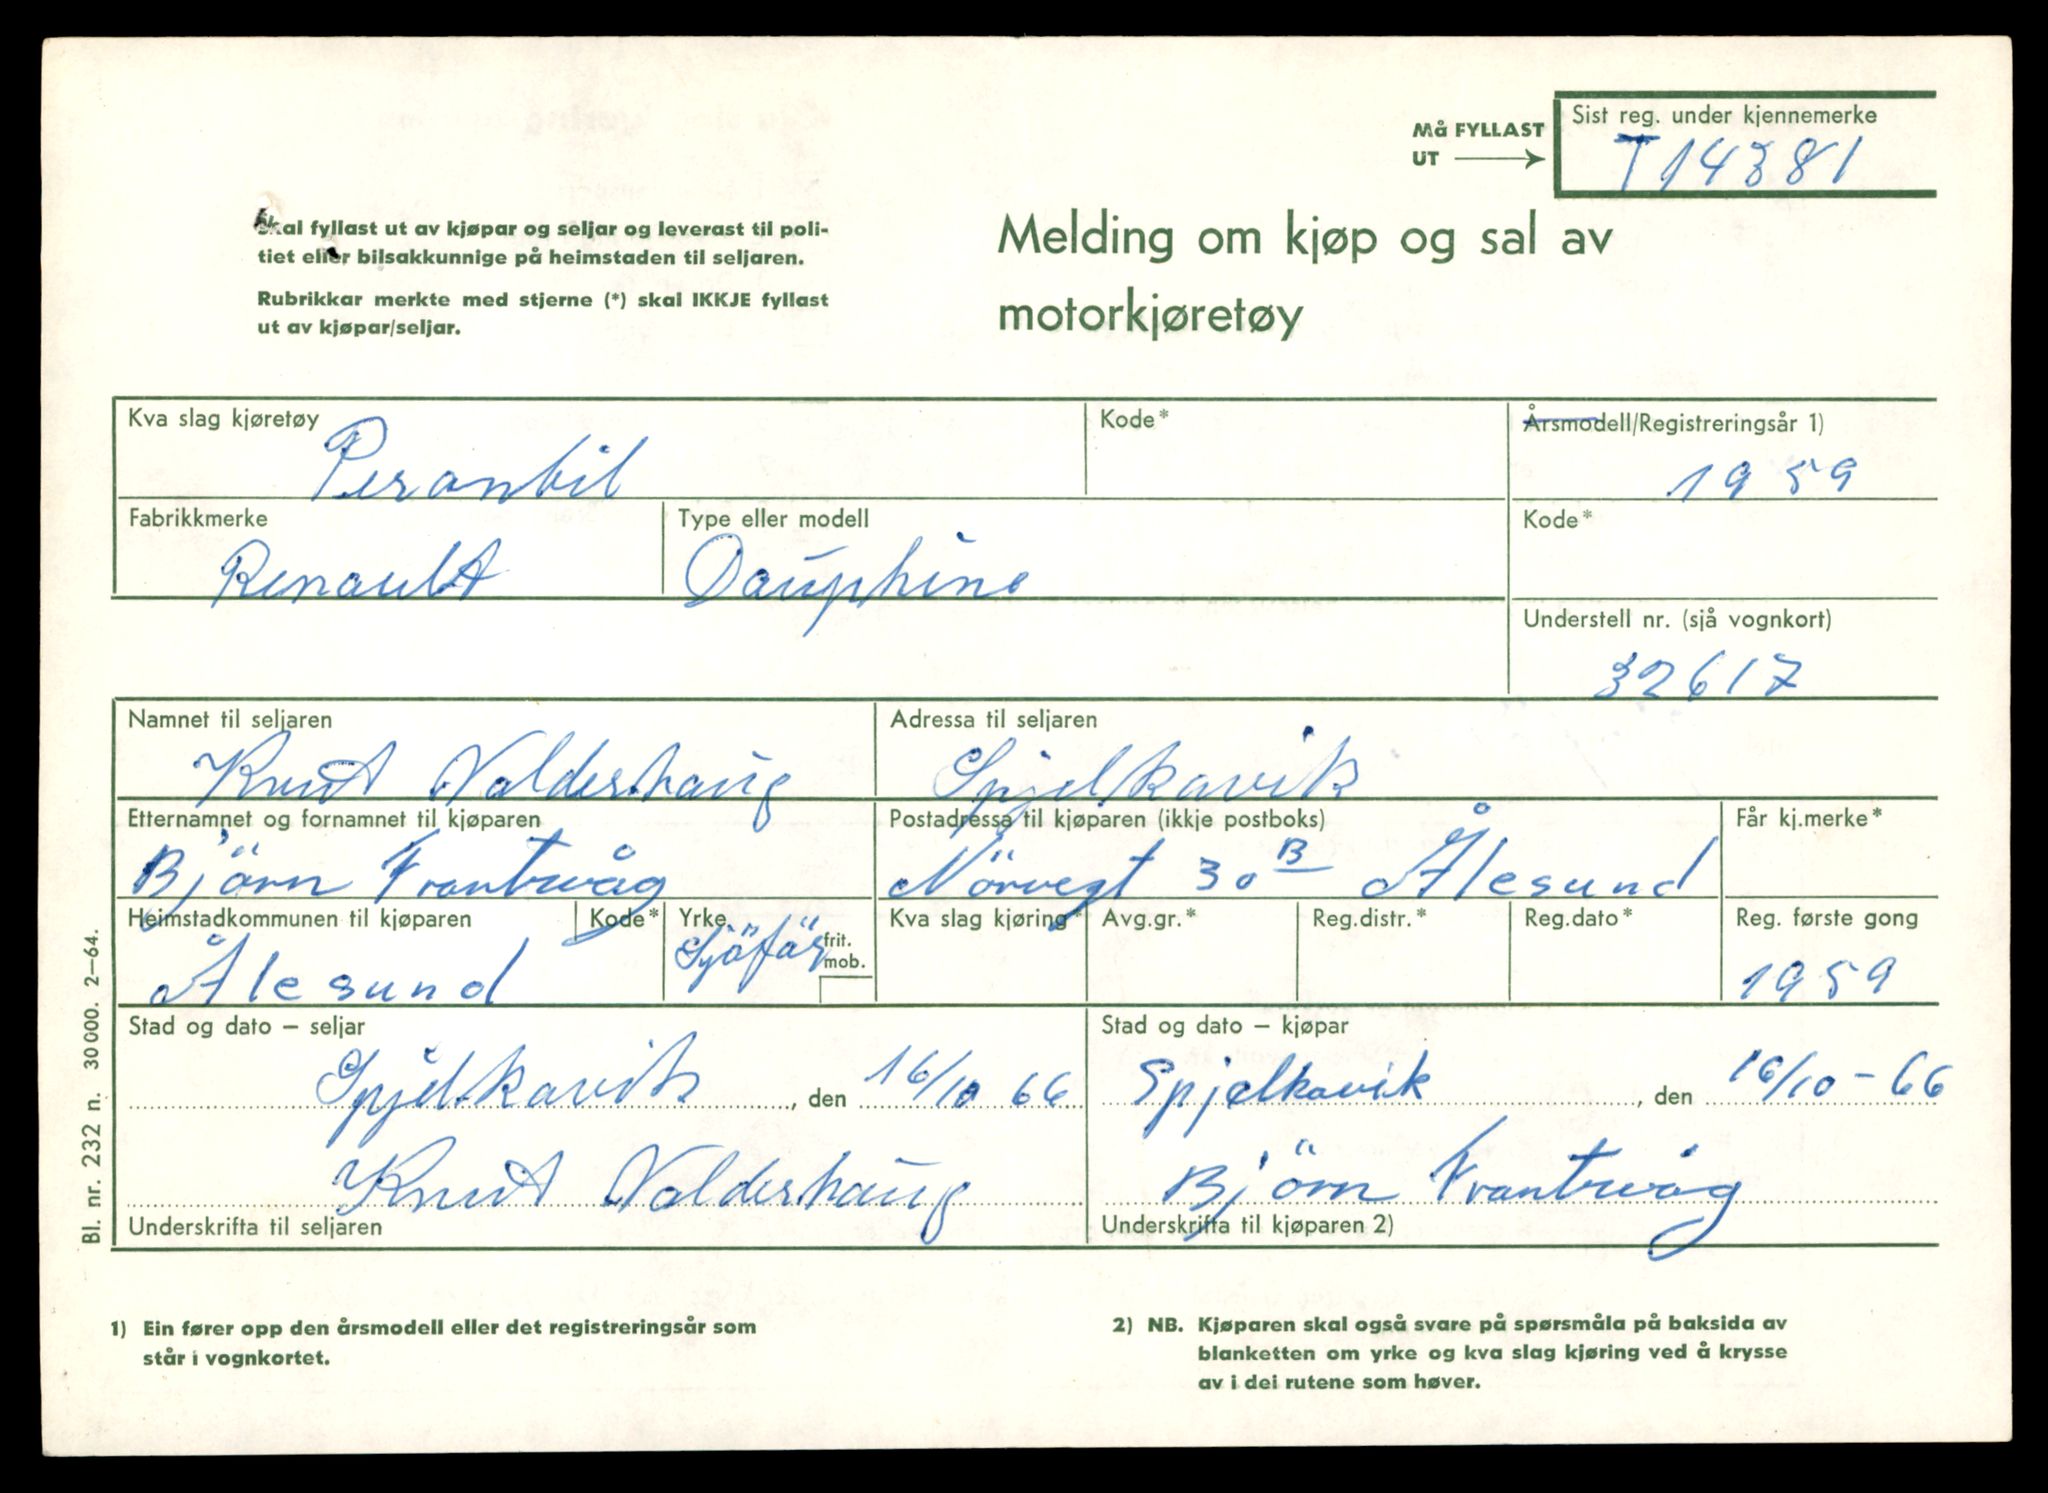 Må FYLLAST UT
Sist reg. under kjennemerke
T14381
Skal fyllast ut av kjøpar og seljar og leverast til poli-
tiet eller bilsakkunnige på heimstaden til seljaren.
Rubrikkar merkte med stjerne (*) skal IKKJE fyllast
ut av kjøpar/seljar.
Melding om kjøp og sal av
motorkjøretøy
Kva slag kjøretøy
Persanbil
Kode*
Årsmodell/Registreringsår 1)
1959
Fabrikkmerke
Renault
Type eller modell
Dauphine
Kode*
Understell nr. (sjå vognkort)
32617
Namnet til seljaren
Knut Valderhaug
Adressa til seljaren
Spjelkavik
Etternamnet og fornamnet til kjøparen
Bjørn Frantvåg
Postadressa til kjøparen (ikkje postboks)
Nörvegt 30 B Ålesund
Får kj.merke*
Heimstadkommunen til kjøparen
Ålesund
Kode*
Yrke
Sjöfar
frit.
mob.
Kva slag kjøring*
Avg.gr.*
Reg.distr.*
Reg.dato*
Reg. første gong
1959
Stad og dato – seljar
Spjelkavik, den 16/10 66
Knut Valderhaug
Underskrifta til seljaren
Stad og dato – kjøpar
Spjelkavik, den 16/10-66
Björn Frantvåg
Underskrifta til kjøparen 2)
Bl. nr. 232 n. 30000. 2–64.
1) Ein fører opp den årsmodell eller det registreringsår som
står i vognkortet.
2) NB. Kjøparen skal også svare på spørsmåla på baksida av
blanketten om yrke og kva slag kjøring ved å krysse
av i dei rutene som høver.